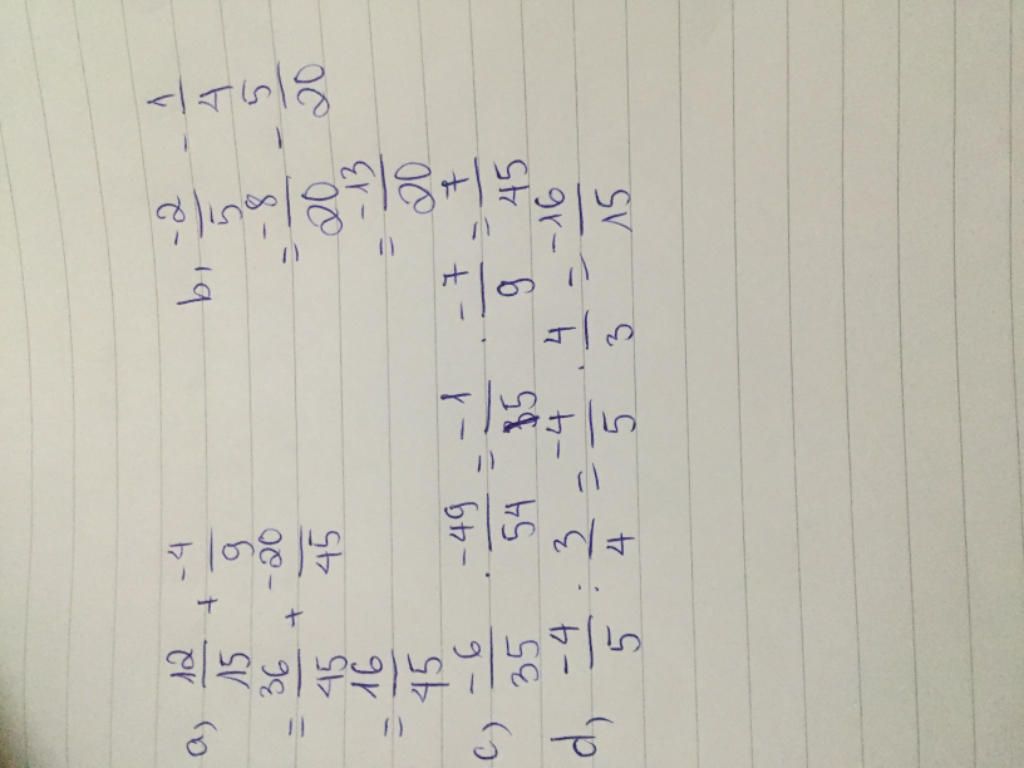 a) 12/15 + -4/9
= 36/45 + -20/45
= 16/45
b, -2/5 - 1/4
= -8/20 - 5/20
= -13/20
c) -6/35 . -49/54 = -1/5 . -7/9 = 7/45
d) -4/5 : 3/4 = -4/5 . 4/3 = -16/15